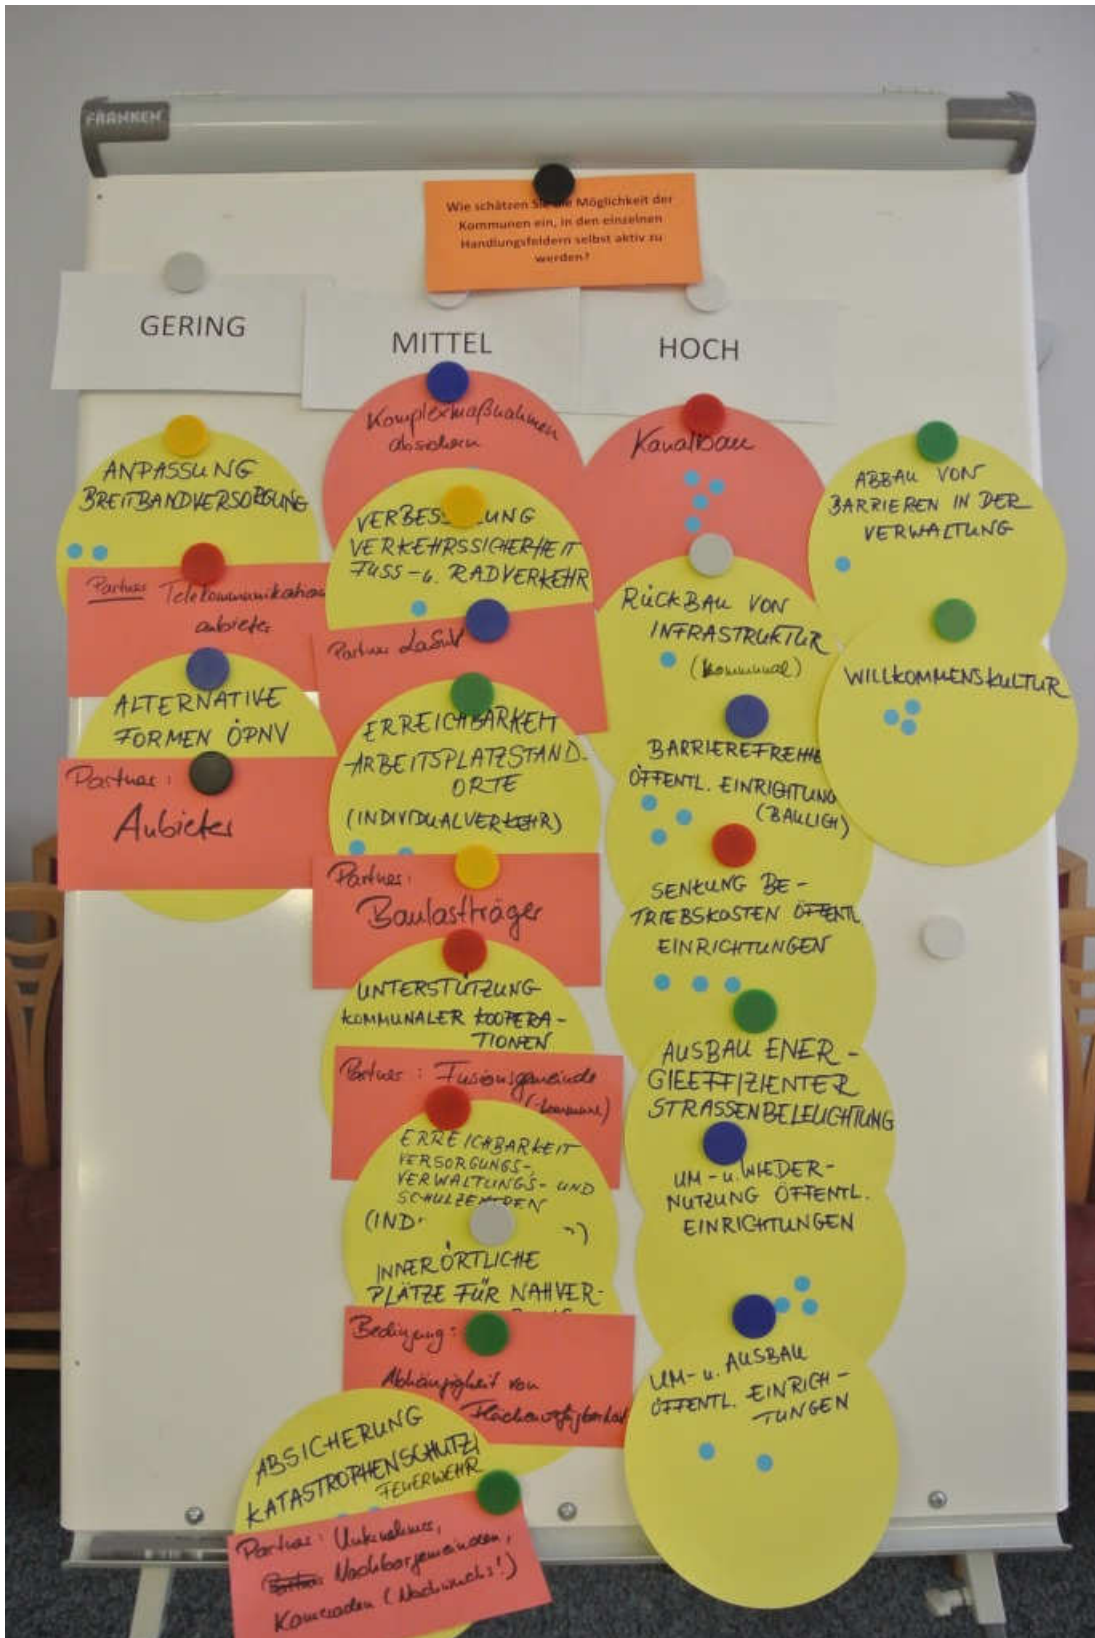 FRANKEN
Wie schätzen Sie die Möglichkeit der
Kommunen ein, in den einzelnen
Handlungsfeldern selbst aktiv zu
werden?
GERING
MITTEL
HOCH
ANPASSUNG
BREITBANDVERSORGUNG
Partner Telekommunikation
anbieter
ALTERNATIVE
FORMEN ÖPNV
Partner:
Anbieter
Komplexmaßnahmen
absichern
VERKEHRSSICHERHEIT
FUSS- u. RADVERKEHR
Partner LaSuV
ERREICHBARKEIT
ARBEITSPLATZSTAND-
ORTE
(INDIVIDUALVERKEHR)
Partner:
Baulastträger
UNTERSTÜTZUNG
KOMMUNALER KOOPERA-
TIONEN
Partner: Fusionsgemeinde
(-kommune)
ERREICHBARKEIT
VERSORGUNGS-,
VERWALTUNGS- UND
SCHULZENTREN
(IND
INNERÖRTLICHE
PLÄTZE FÜR NAHVER-
Bedingung:
Abhängigkeit von
Flächenverfügbarkeit
ABSICHERUNG
KATASTROPHENSCHUTZ/
FEUERWEHR
Partner: Unternehmer,
Nachbargemeinden,
Kameraden (Nachwuchs!)
Kanalbau
RÜCKBAU VON
INFRASTRUKTUR
(kommunal)
BARRIEREFREIHE
ÖFFENTL. EINRICHTUNG
(BAULICH)
SENKUNG BE-
TRIEBSKOSTEN ÖFFENTL.
EINRICHTUNGEN
AUSBAU ENER-
GIEEFFIZIENTER
STRASSENBELEUCHTUNG
UM- u. WIEDER-
NUTZUNG ÖFFENTL.
EINRICHTUNGEN
UM- u. AUSBAU
ÖFFENTL. EINRICH-
TUNGEN
ABBAU VON
BARRIEREN IN DER
VERWALTUNG
WILLKOMMENSKULTUR